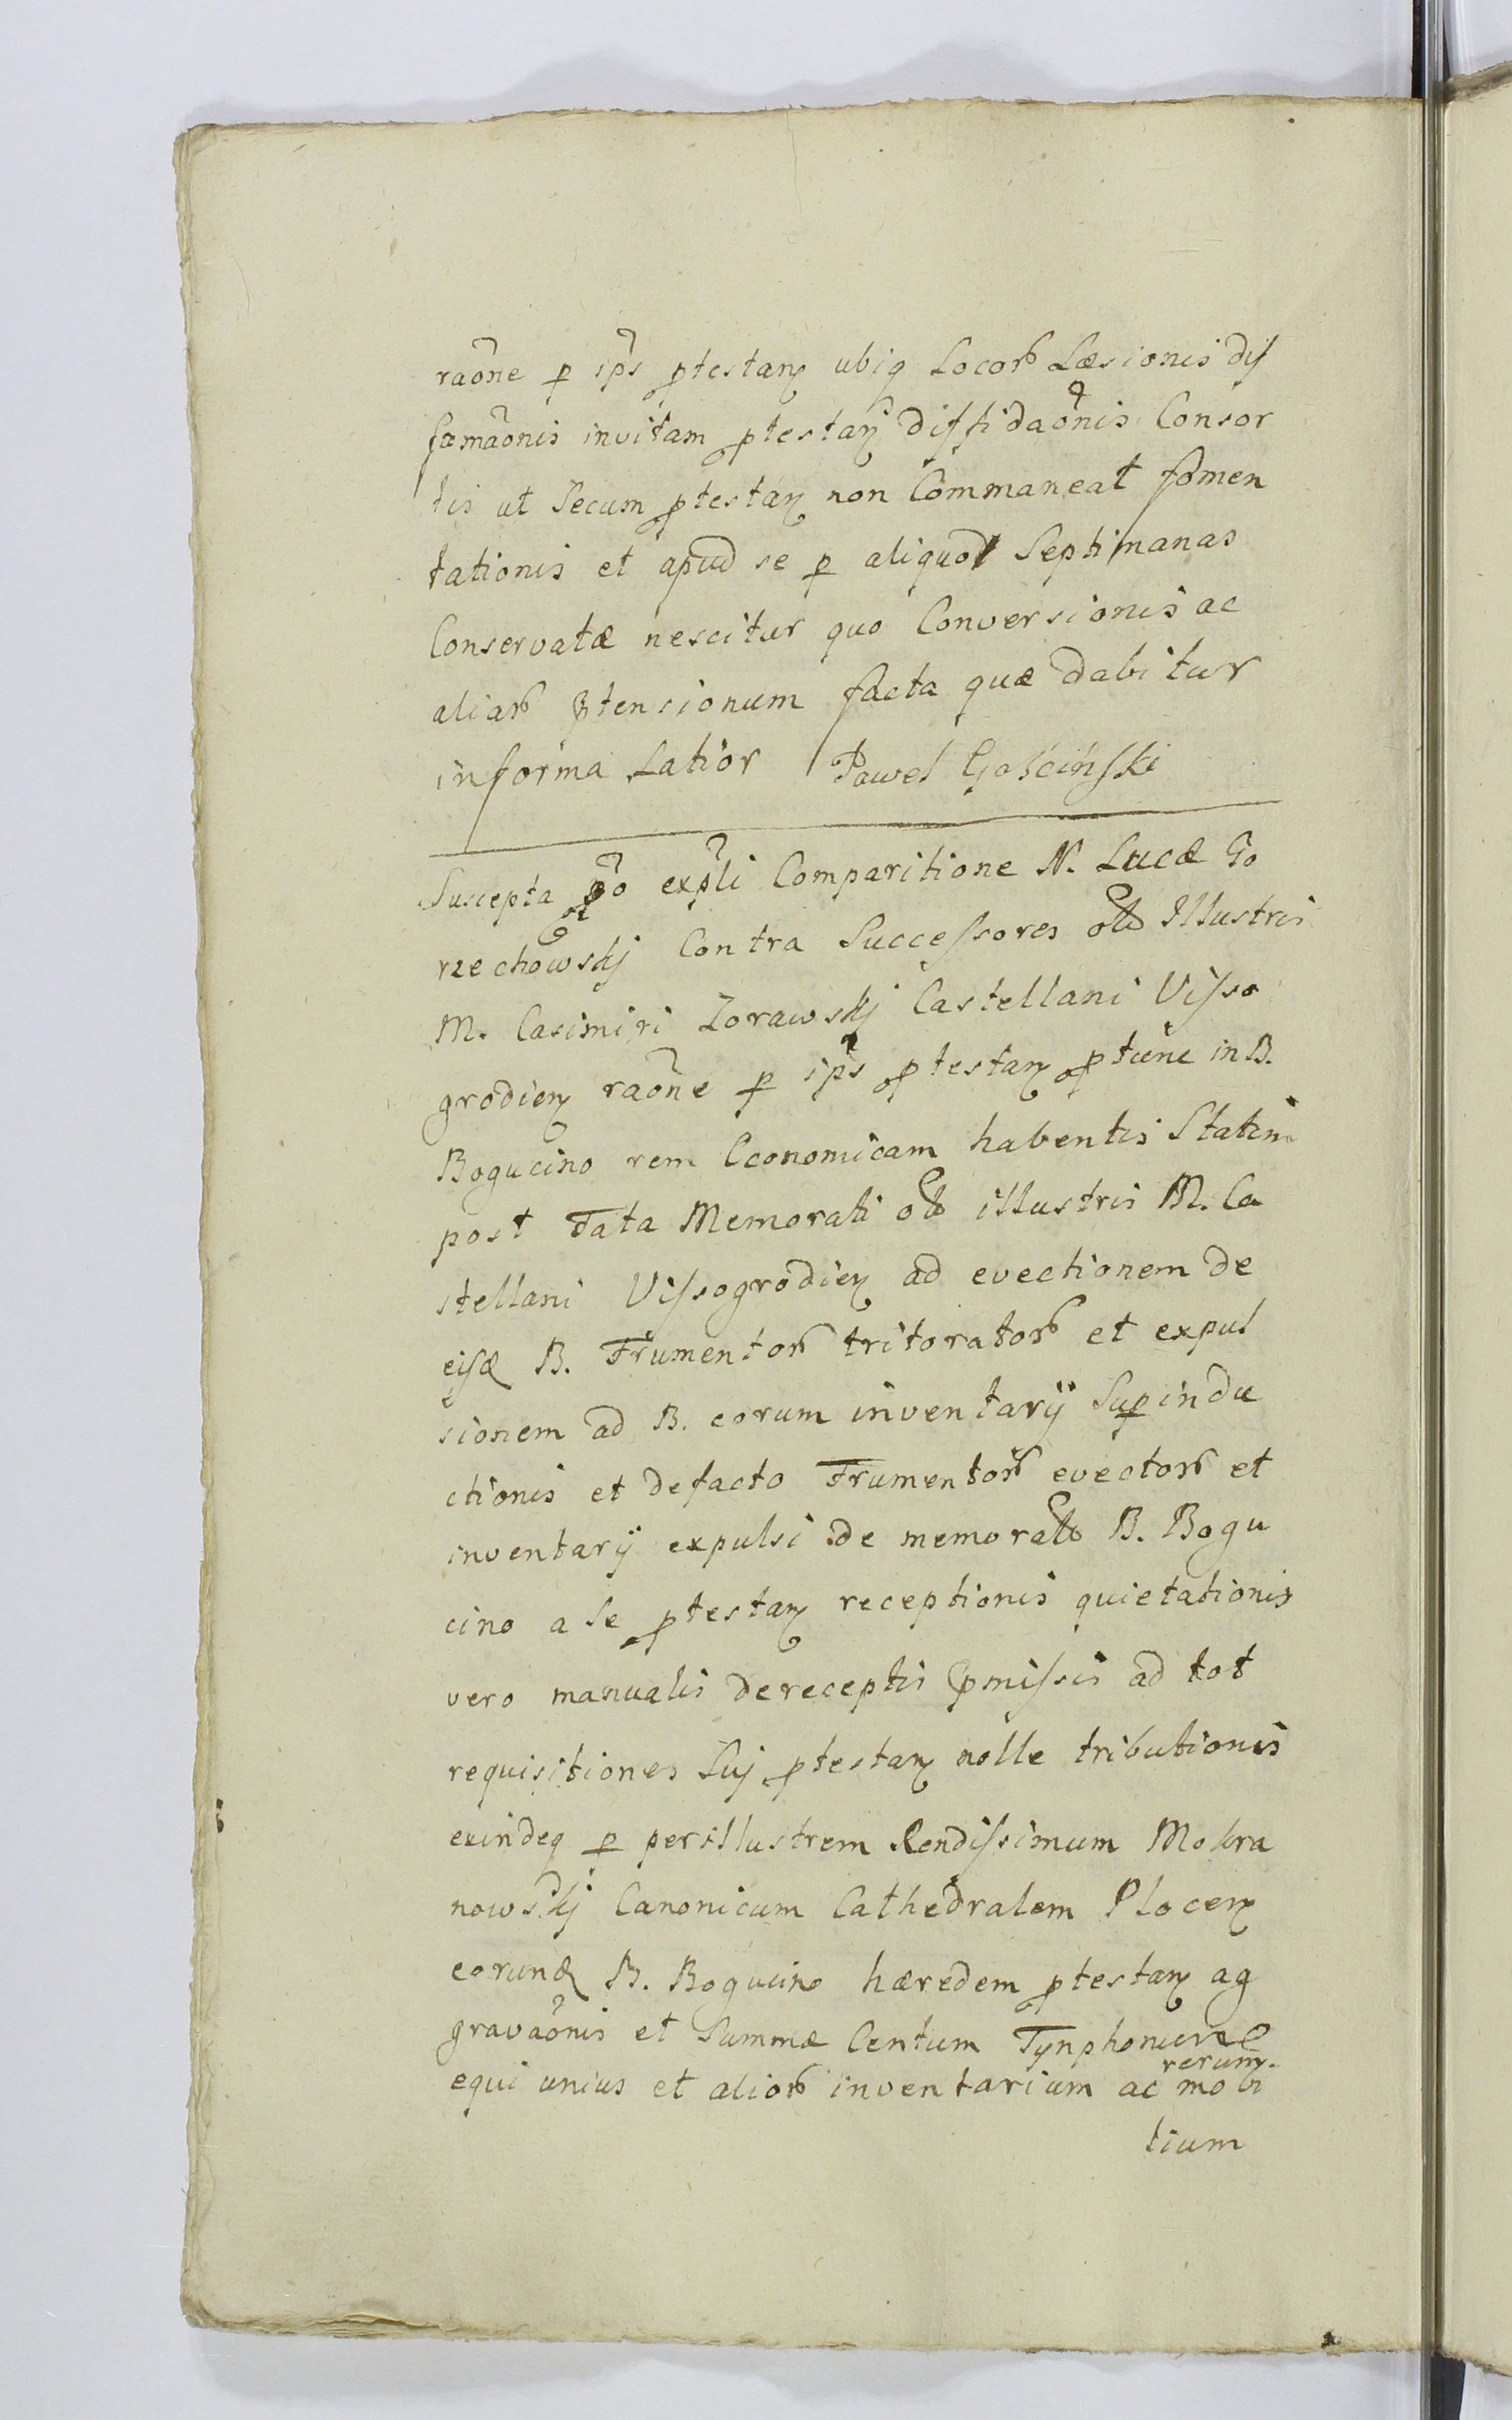 raõne p ips ptestanꝫ ubiq Locorꝫ Læsionis dif
famaõnis invitam ptestanꝫ diffidaõnis Consor
tis ut Secum ptestanꝫ non Commaneat fomen
tationis et apud se p aliquod Septimanas
Conservatæ nescitur quo Conversionis ac
aliarꝫ ptensionum facta quæ dabitur
informa Latior Paweł Gościński
Suscepta expli Comparitione N. Lucæ Go
rzechowskj Contra Successores olb Illustris
M. Casimiri Zorawskj Castellani Visso
grodienꝫ raõne p ips ptestanꝫ ptunc in B.
Bogucino rem Oeconomicam habentis Statim
post Fata Memorati olb illustris M. Ca
stellani Vissogrodienꝫ ad evectionem de
eisd B. Frumentorꝫ tritoratorꝫ et expul
sionem ad B. eorum inventarÿ Supindu
ctionis et defacto Frumentorꝫ evectorꝫ et
inventarÿ expulsi de memoratb B. Bogu
cino a se ptestanꝫ receptionis quietationis
vero manualis dereceptis pmissis ad tot
requisitiones Suj ptestanꝫ nolle tributionis
exindeq p perillustrem Rendissimum Mokra
nowskj Canonicum Cathedralem Plocenꝫ
eorund B. Bogucino hæredem ptestanꝫ ag
gravaõnis et Summæ Centum Tynphonum
rerum
equi unius et aliorꝫ inventarium ac mobi
lium